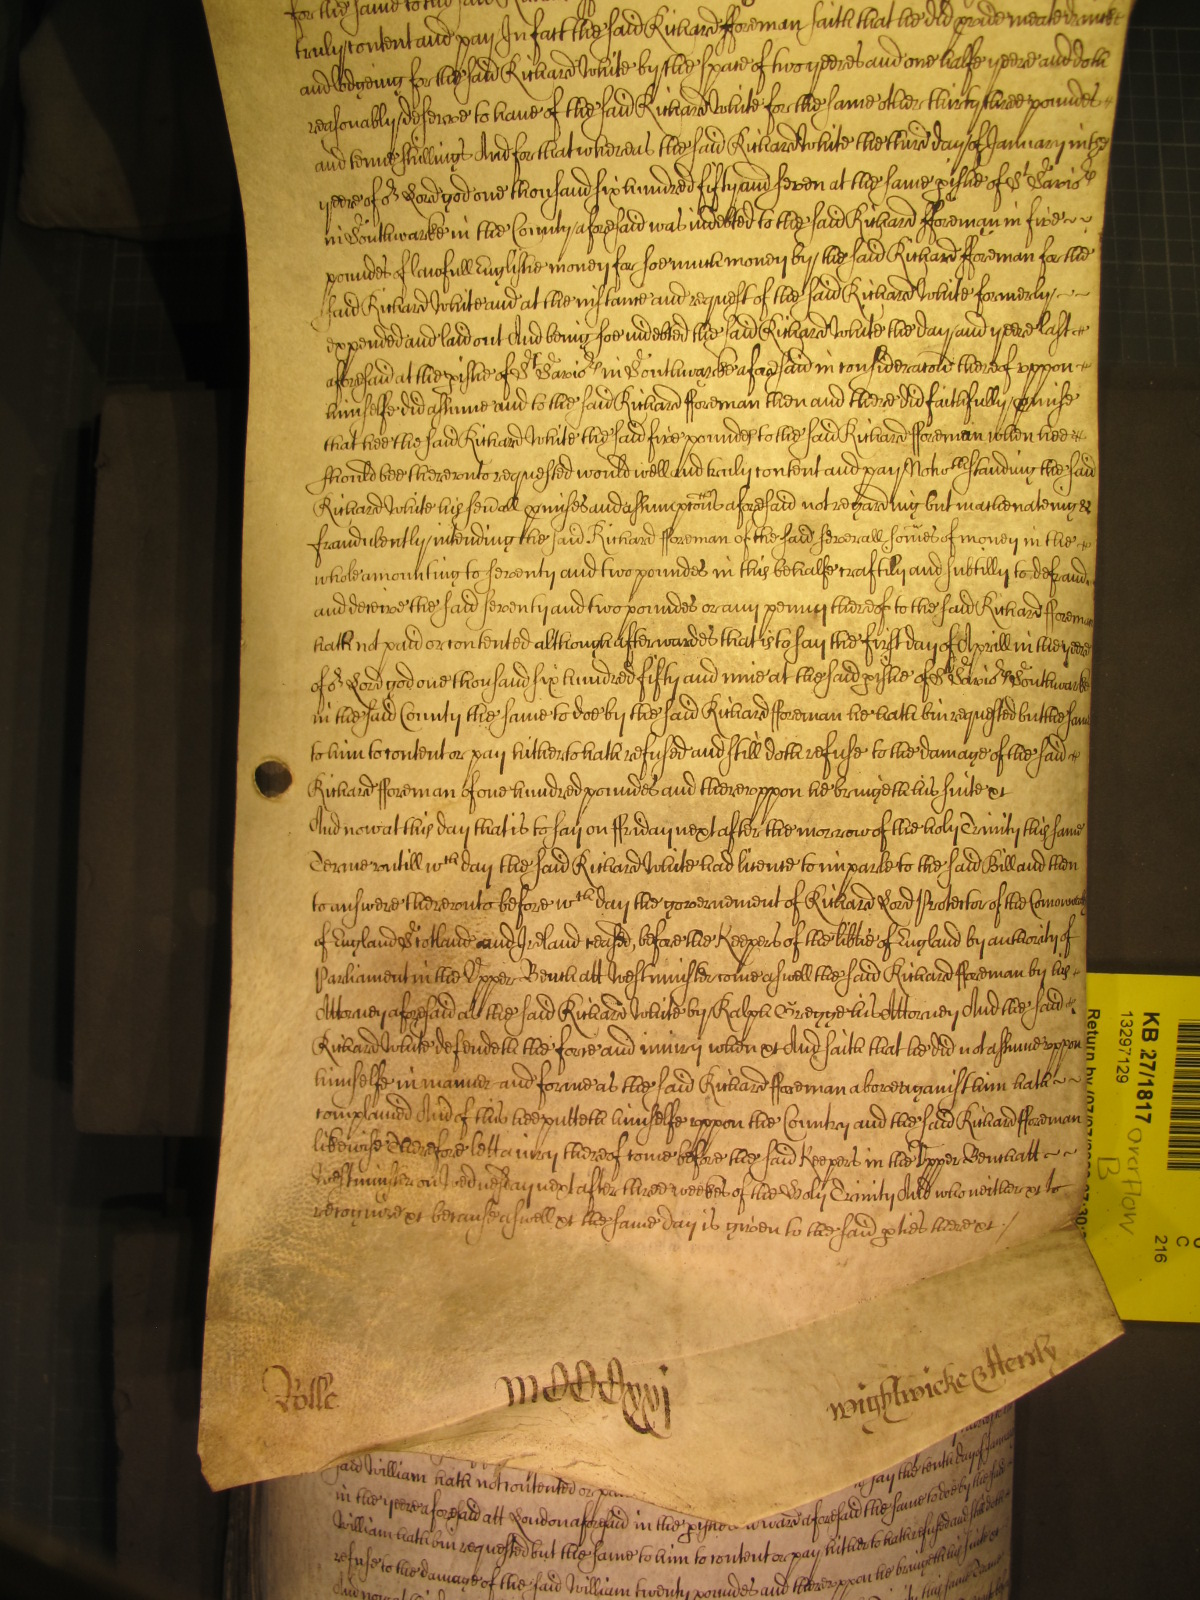 for the same to the said Ric
truly content and pay In fact the said Richard fforeman saith that he did p̱vide meate drincke
and lodgeing for the said Richard White by the space of two yeeres and one halfe yeere and doth
reasonably deserve to have of the said Richard White for the same other thirty three poundes
and tenne shillings And for that whereas the said Richard White the third day of January in the
yeere of oʳ Lord god one thousand six hundred fifty and seven at the same p̱ishe of Sᵗ Savioʳˢ
in Southwarke in the County aforesaid was indebted to the said Richard fforeman in five ~ ~
poundes of lawfull English money for soe much money by the said Richard fforeman for the
said Richard White and at the instance and request of the said Richard White formerly ~ ~
expended and laid out And being soe indebted the said Richard White the day and yeere last
aforesaid at the p̱ishe of Sᵗ Savioʳˢ in Southwarke aforesaid in consideracon thereof vppon
himselfe did assume and to the said Richard fforeman then and there did faithfully p̱mise
that hee the said Richard White the said five poundes to the said Richard fforeman when hee
should bee therevnto requested would well and truly content and pay Notwᵗʰstanding the said
Richard White his sevʳall p̱mises and assumpcons aforesaid not regarding but machenateing &
fraudulently intending the said Richard fforeman of the said severall somes of money in the
whole amounting to seventy and two poundes in this behalfe craftily and subtilly to defraud
and deceive the said seventy and two poundes or any penny thereof to the said Richard fforeman
hath not paid or contented although afterwardes that is to say the first day of Aprill in the yeere
of oʳ Lord god one thousand six hundred fifty and nine at the said p̱ishe of Sᵗ Savioʳˢ Southwarke
in the said County the same to doe by the said Richard fforeman he hath bin requested but the same
to him to content or pay hitherto hath refused and still doth refuse to the damage of the said
Richard fforeman of one hundred poundes and therevppon he bringeth his suite &c
And now at this day that is to say on ffriday next after the morrow of the holy Trinity this same
Terme vntill wᶜʰ day the said Richard White had licence to imparle to the said Bill and then
to answere therevnto before wᶜʰ day the governement of Richard Lord Protector of the Comonwealth
of England Scotland and Ireland ceased, before the Keepers of the libtie of England by authority of
Parliament in the Vpper Bench att Westminster come aswell the said Richard fforeman by his
Attorney aforesaid as the said Richard White by Ralph Gregge his Attorney And the said
Richard White defendeth the force and iniury when &c And saith that he did not assume vppon
himselfe in manner and forme as the said Richard fforeman above against him hath ~ ~
complained And of this hee putteth himselfe vppon the Country and the said Richard fforeman
likewise Therefore lett a iury thereof come before the said Keepers in the Vpper Bench att ~ ~
Westminster on Wednesday next after three weekes of the Holy Trinity And who neither &c to
recognize &c because aswell &c the same day is given to the said p̱ties there &c
Rolle
wightwicke & Henly
said William hath not contented or pa
say the tenth day of Januar
in the yeere aforesaid att London aforesaid in the p̱ishe ward aforesaid the same to doe by the said
William hath bin requested but the same to him to content or pay hitherto hath refused and still doth
refuse to the damage of the said William twenty poundes and therevppon he bringeth his suite &c
KB 27/1817
13297129
overflow
B
216
C
Return by